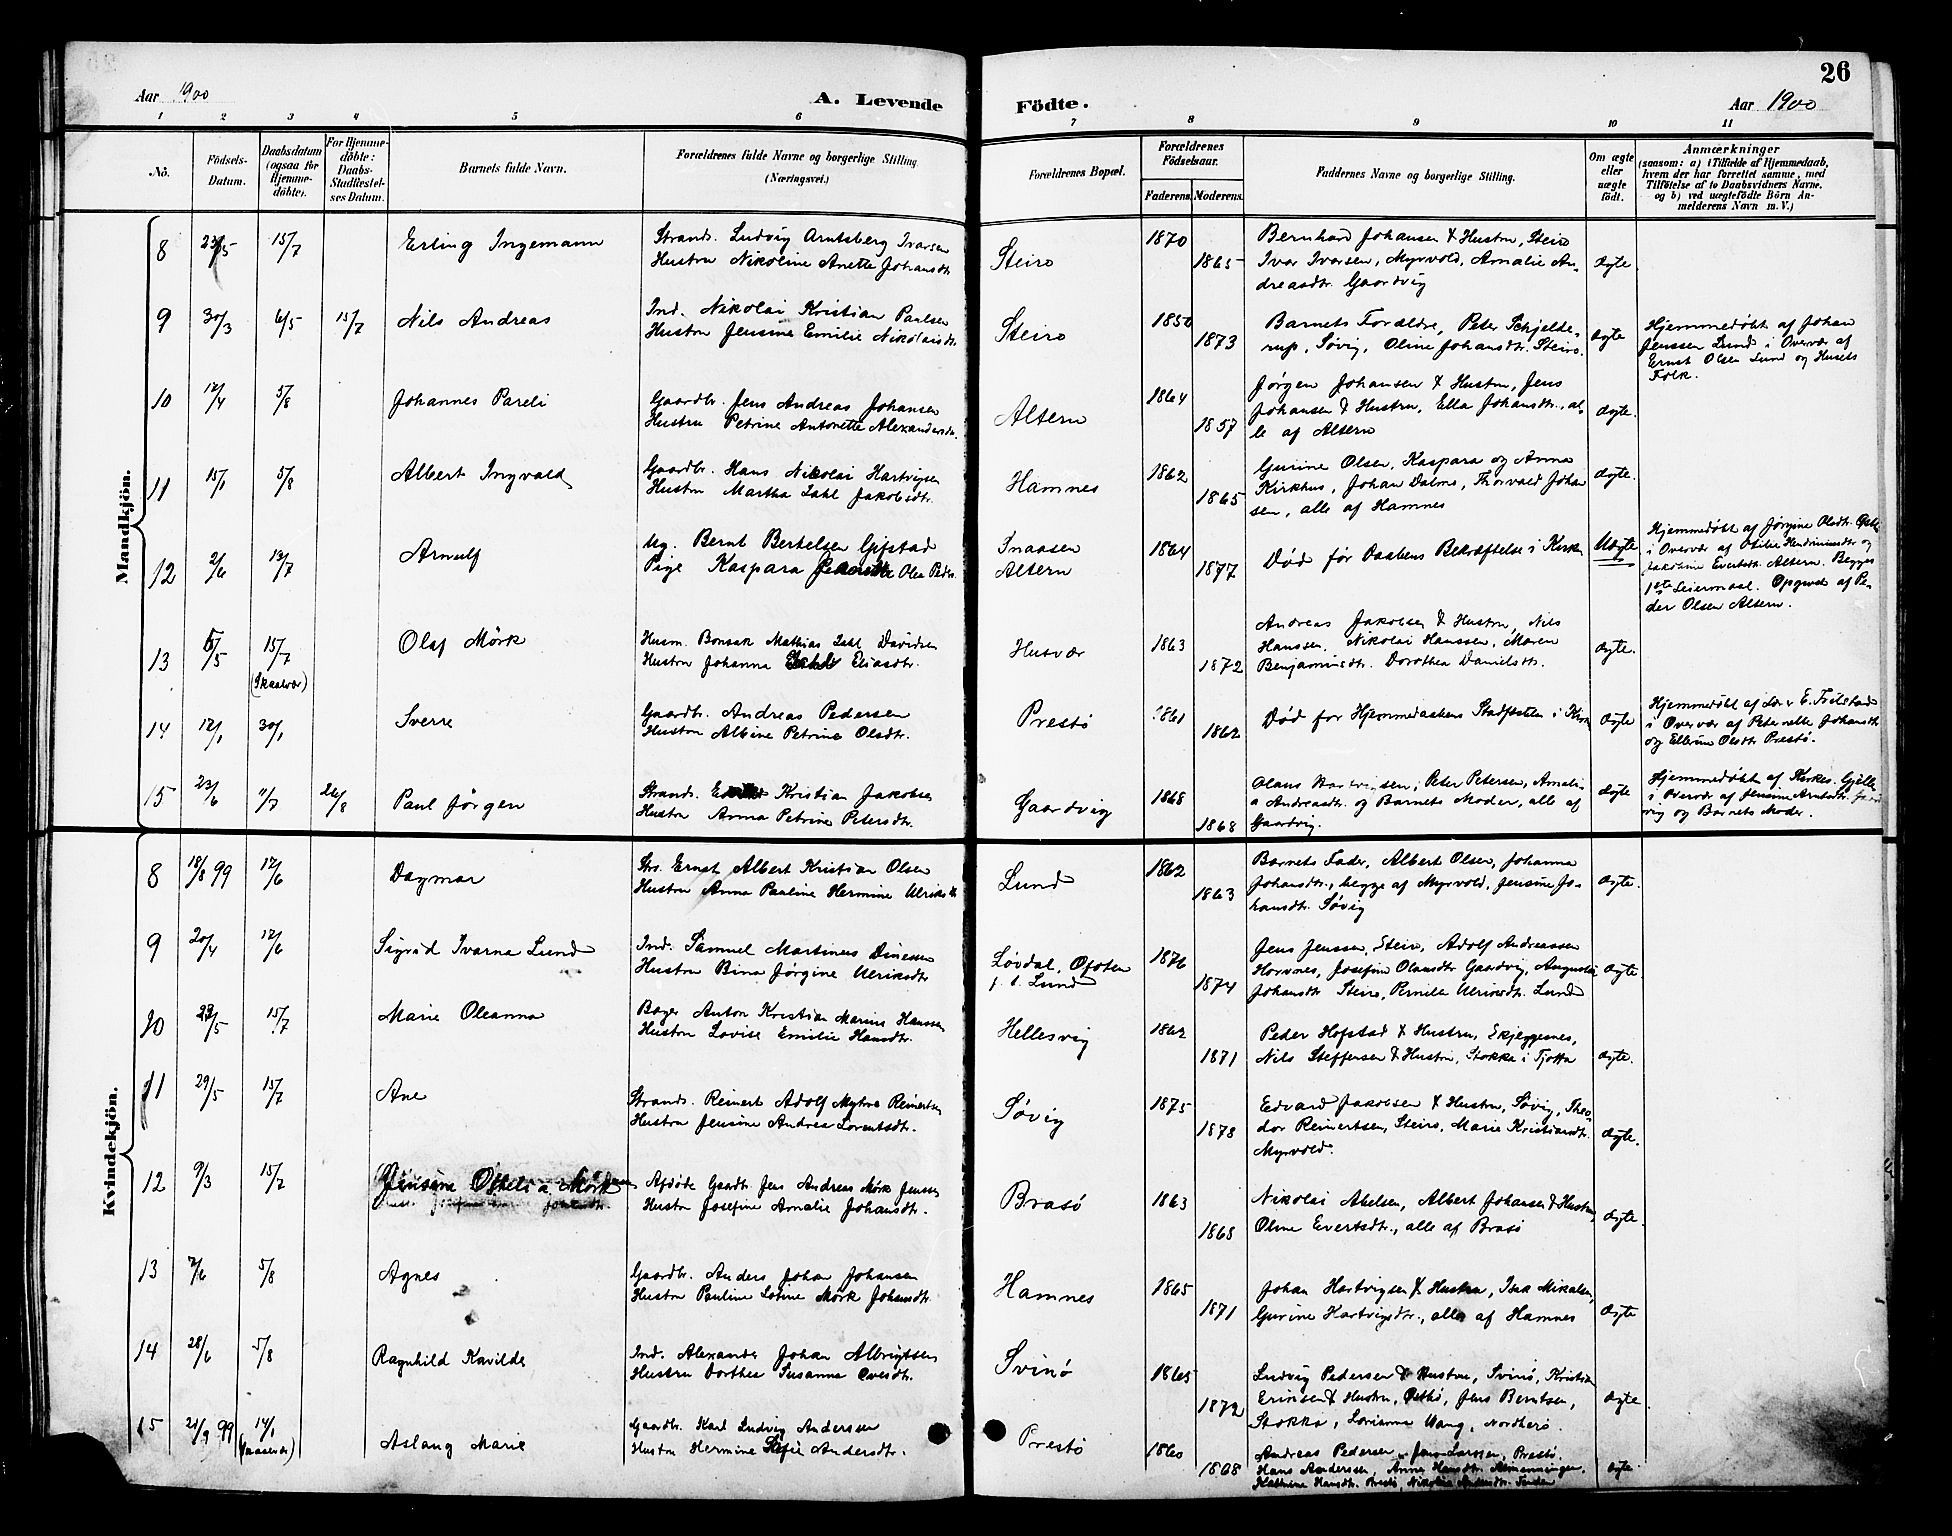 26
Aar 1900
A. Levende
Födte.
Aar 1900
1 2 3 4 5 6 7 8 9 10 11
No.
Födsels-
Datum.
Daabsdatum
(ogsaa for
Hjemme-
döbte).
For Hjemme-
döbte:
Daabs-
Stadfæstel-
ses Datum.
Barnets fulde Navn.
Forældrenes fulde Navne og borgerlige Stilling.
(Næringsvei.)
Forældrenes Bopæl.
Forældrenes
Födselsaar.
Faderens. Moderens.
Faddernes Navne og borgerlige Stilling.
Om ægte
eller
uægte
födt.
Anmærkninger
(saasom: a) i Tilfælde af Hjemmedaab,
hvem der har forrettet samme, med
Tilföielse af to Daabsvidners Navne,
og b) ved uægtefödte Börn An-
melderens Navn m. V.)
Mandkjön.
8 23/5 15/7 Erling Ingemann
Strands. Ludvig Arntsberg Ivarsen
Hustru Nikoline Anette Johansdtr.
Steiro 1870 1865
Bernhard Johansen & Hustru, Steiro
Ivar Ivarsen, Myrvold, Amalie An-
dreasdtr. Gaardvig
Ægte
9 30/3 6/5 15/7 Nils Andreas
Ind. Nikolai Kristian Paulsen
Hustru Jensine Emilie Nikolaisdtr.
Steiro 1850 1873
Barnets Forældre, Peter Schjelde-
rup, Søvig, Oline Johansdtr. Steiro.
Ægte
Hjemmedøbt af Johan
Jenssen Lund i Overvær af
Ernst Olsen Lund og Husets
Folk.
10 12/4 5/8 Johannes Pareli
Gaardbr. Jens Andreas Johansen
Hustru Petrine Antonette Alexandersdtr.
Altern 1864 1857
Jørgen Johansen & Hustru, Jens
Johansen & Hustru, Ella Johansdtr., al-
le af Altern
Ægte.
11 15/1 5/8 Albert Ingvald
Gaardbr. Hans Nikolai Hartvigsen
Hustru Martha Dahl Jakobsdtr.
Hamnes 1862 1865
Gurine Olsen, Kaspara og Anna
Kirkhus, Johan Dalmo, Thorvald Johan
sen, alle af Hamnes
Ægte.
12 2/6 13/7 Arnulf
Ug. Bernt Bertelsen Gifstad
Pige Kaspara Jeanette Olea Peders
Inaasen
Altern 1864 1877
Død før Daabens Bekræftelse i Kirken
Uægte
Hjemmedøbt af Jørgine Olsdtr.
i Overvær af Otilie Hendriksdtr og
Jakobine Evertsdtr. Altern. Begges
1ste Leiermaal. Opgivet af Pe-
der Olsen Altern.
13 5/5 15/7 (Skaalvær) Olaf Mörk
Husm. Bonsak Mathias Dahl Davidsen
Hustru Johanna Eliasdtr.
Husvær 1863 1872
Andreas Jakobsen & Hustru, Nils
Hanssen, Nikolai Hanssen, Maren
Benjaminsdtr. Dorothea Danielsdtr.
Ægte.
14 12/1 30/1 Sverre
Gaardbr. Andreas Pedersen
Hustru Albine Petrine Olsdtr.
Prestö 1861 1862
Død før Hjemmedaabens Stadfæstelse i Kirken
Ægte
Hjemmedøbt af Lærer E. Fjelstad
i Overvær af Peternelle Johansdtr
og Ellerine Olsdtr Prestö.
15 23/6 11/7 26/8 Paul Jørgen
Strands. Kristian Jakobsen
Hustru Anna Petrine Petersdtr.
Gaardvig 1868 1868
Olaus Hartvigsen, Peter Petersen, Amali-
a Andreasdtr. og Barnets Moder, alle af
Gaardvig.
Ægte
Hjemmedøbt af Kirkes. Gjelle
i Overvær af Jensine Arntsdtr. Gaard
vig og Barnets Moder.
Kvindekjön.
8 18/8 99 17/6 Dagmar
Strs. Ernst Albert Kristian Olsen
Hustru Anna Pauline Hermine Ulriksdtr
Lund 1862 1863
Barnets Fader, Albert Olsen, Johanna
Johansdtr., begge af Myrvold, Jensine Jo-
hansdtr. Søvig
Ægte.
9 20/4 17/6 Sigrid Ivarna Lund
Ind. Samuel Martinus Dinessen
Hustru Bina Jørgine Ulriksdtr
Løvdal, Ofoten
f. t. Lund 1876 1874
Jens Jenssen, Steiro, Adolf Andreassen
Horvnes, Josefine Olausdtr Gaardvig, Augusta
Johansdtr Steiro, Pernille Ulriksdtr. Lund
Ægte.
10 23/5 15/7 Marie Oleanna
Bager Anton Kristian Marius Hanssen
Hustru Lovise Emilie Hansdtr.
Hellesvig 1862 1871
Peder Hofstad & Hustru, Skjeggenes,
Nils Steffensen & Hustru, Stokka i Tjøtta
Ægte.
11 29/5 15/7 Ane
Strands. Reinert Adolf Myhre Reinertsen
Hustru Jensine Andrea Lorentsdtr.
Søvig 1875 1878
Edvard Jakobsen & Hustru, Søvig, Theo-
dor Reinertsen, Steiro, Marie Kristiansdtr.
Myrvold.
Ægte.
12 9/3 15/7 Jensine Othelia Mörk
Afdöde Gaardbr. Jens Andreas Mörk Jenssen
Hustru Josefine Amalie Johansdtr.
Brasö 1863 1868
Nikolai Abelsen, Albert Johansen & Hustru,
Oline Evertsdtr., alle af Brasö
Ægte.
13 7/6 5/8 Agnes
Gaardbr. Anders Johan Johansen
Hustru Pauline Lovine Mörk Johansdtr.
Hamnes 1865 1871
Johan Hartvigsen & Hustru, Ina Mikalsen,
Gurine Hartvigsdtr., alle af Hamnes
Ægte
14 28/6 5/8 Ragnhild Kavilde
Ind. Alexander Johan Albrigtsen
Hustru Dorthea Susanna Ovesdtr.
Svinö 1865 1872
Ludvig Pedersen & Hustru, Svinö, Kristian
Eriksen & Hustru, Jens Berntsen,
Stokka, Lorianna Vang, Nordherö
Ægte.
15 21/9 99 14/1 Aslaug Marie
Gaardbr. Karl Ludvig Anderssen
Hustru Hermine Sofie Andersdtr.
Prestö 1860 1868
Andreas Pedersen, Jens Larssen, Prestö.
Hans Anderssen, Anna Hansdtr. Almenningen.
Kathrine Hansdtr. Prestö,
Ægte